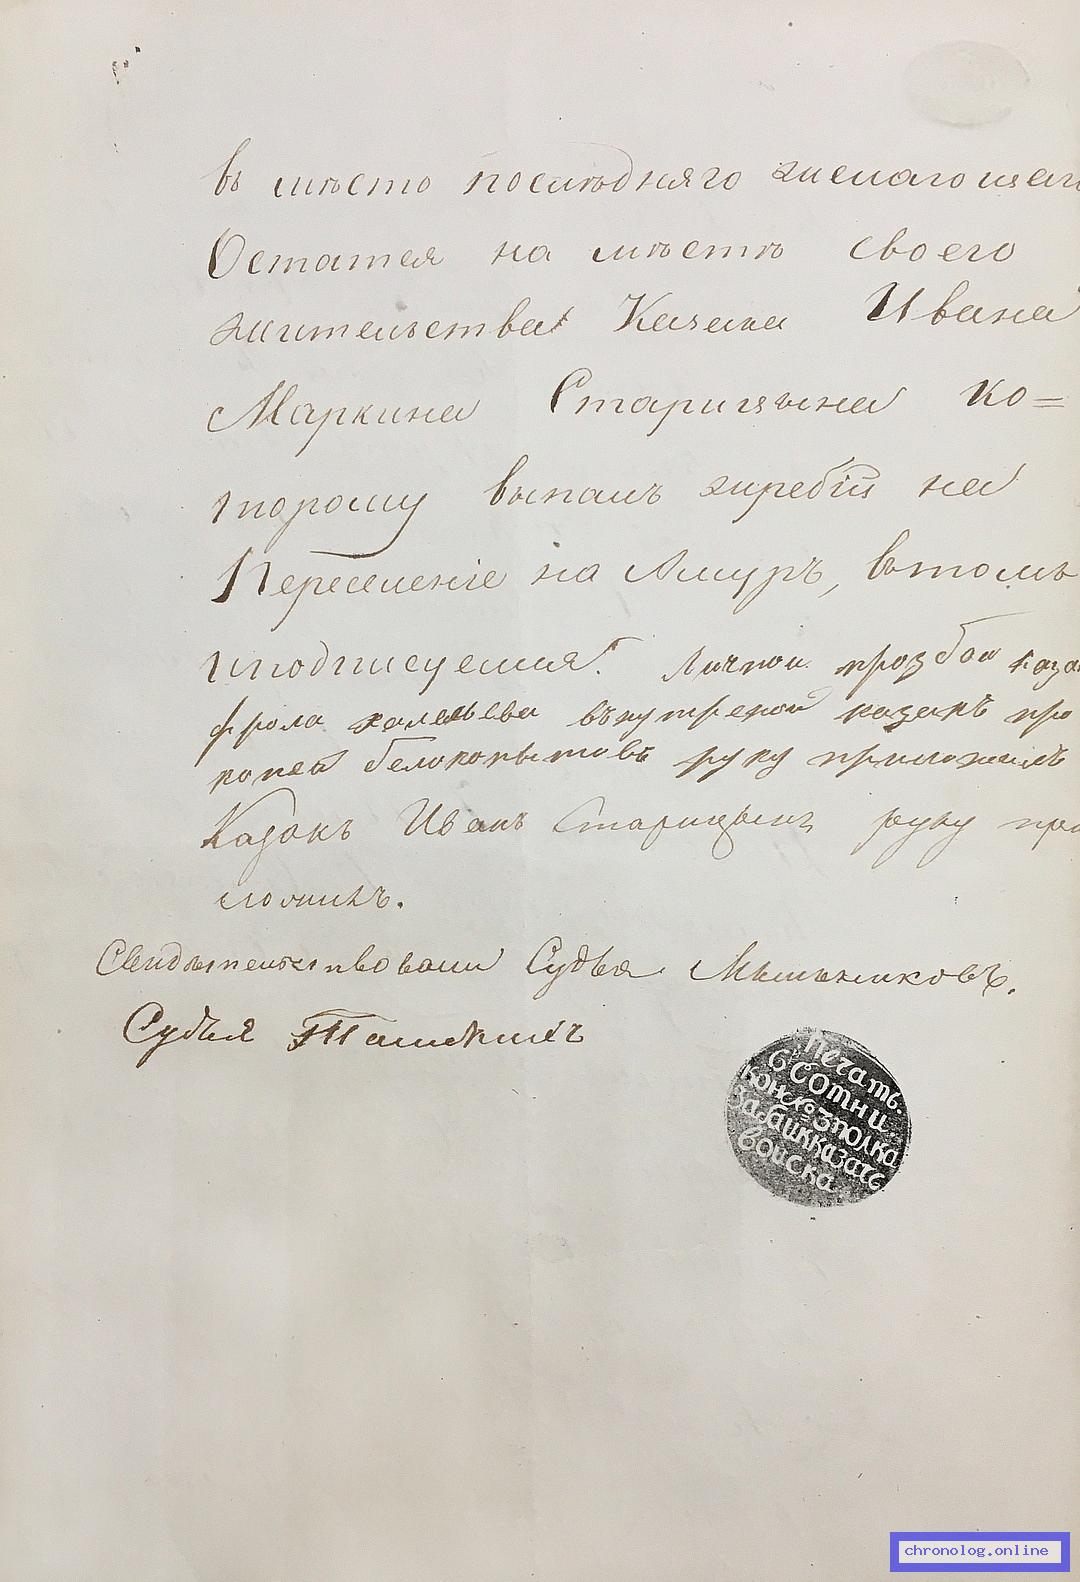 въ мѣсто послѣдняго желающаг
Остатся на мѣстѣ своего
жительства Казака Ивана
Маркина Старицына ко=
торому выпалъ жребій на
Переселеніе на Амуръ, втомъ
иподписуемся. Личной прозбой каза
фрола внутреной казакъ про
копей белокопытовъ руку приложилъ
Казакъ Иванъ Старицынъ руку при
ложилъ.
Свидѣтельствовали Судья Мыльниковъ.
Судья
Печать
6 Сотни
кон. № 3 полка
Забайк казачь
войска
chronolog.online